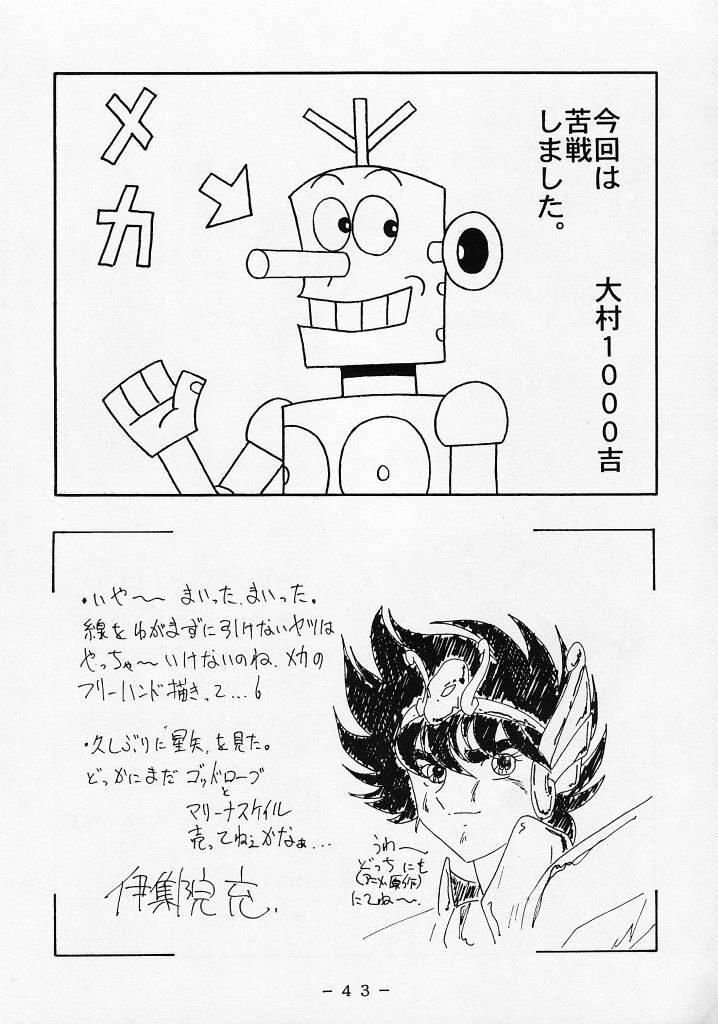 今回は
苦戦
しました。
大村1000吉
メカ
・いや〜〜 まいった、まいった。
線をゆがまずに引けないヤツは
やっちゃ〜いけないのね、メカの
フリーハンド描きって…6
・久しぶりに"星矢"を見た。
どっかにまだ ゴッドローブ
と
マリーナスケイル
売ってねぇかなぁ…
伊集院 充.
うわ〜
どっち にも
(アニメ・原作)
にてね〜.
- 43 -